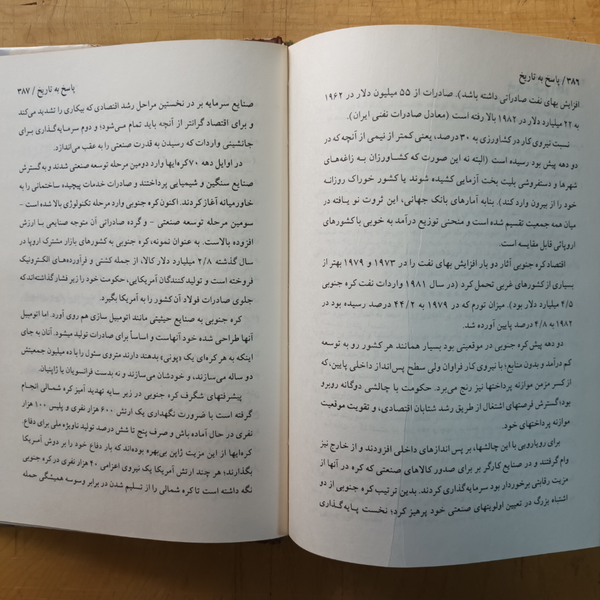 ۳۸۶ / پاسخ به تاریخ
افزایش بهای نفت صادراتی داشته باشد). صادرات از ۵۵ میلیون دلار در ۱۹۶۲
به ۲۲ میلیارد دلار در ۱۹۸۲ بالا رفته است (معادل صادرات نفتی ایران).
نسبت نیروی کار در کشاورزی به ۳۰ درصد، یعنی کمتر از نیمی از آنچه که در
دو دهه پیش بود رسیده است (البته نه این صورت که کشاورزان به زاغه‌های
شهرها و دستفروشی بلیت بخت آزمایی کشیده شوند یا کشور خوراک روزانه
خود را از بیرون وارد کند). بنابه آمارهای بانک جهانی، این ثروت نو یافته در
میان همه جمعیت تقسیم شده است و منحنی توزیع درآمد به خوبی با کشورهای
اروپائی قابل مقایسه است.
اقتصاد کره جنوبی آثار دو بار افزایش بهای نفت را در ۱۹۷۳ و ۱۹۷۹ بهتر از
بسیاری از کشورهای غربی تحمل کرد (در سال ۱۹۸۱ واردات نفت کره جنوبی
۴/۵ میلیارد دلار بود). میزان تورم که در ۱۹۷۹ به ۲۴/۲ درصد رسیده بود در
۱۹۸۲ به ۴/۸ درصد پایین آورده شد.
دو دهه پیش کره جنوبی در موقعیتی بود بسیار همانند هر کشور رو به توسعه
کم درآمد و بدون منابع؛ با نیروی کار فراوان ولی سطح پس‌انداز داخلی پایین، که
از کسر مزمن موازنه پرداختها نیز رنج می‌برد. حکومت با چالشی دوگانه روبرو
بود؛ گسترش فرصتهای اشتغال از طریق رشد شتابان اقتصادی، و تقویت موقعیت
موازنه پرداختهای خود.
برای رویارویی با این چالشها، بر پس اندازهای داخلی افزودند و از خارج نیز
وام گرفتند و در صنایع کارگر بر برای صدور کالاهای صنعتی که کره در آنها از
مزیت رقابتی برخوردار بود سرمایه‌گذاری کردند. بدین ترتیب کره جنوبی از دو
اشتباه بزرگ در تعیین اولویتهای صنعتی خود پرهیز کرد؛ نخست پایه‌گذاری
پاسخ به تاریخ / ۳۸۷
صنایع سرمایه بر در نخستین مراحل رشد اقتصادی که بیکاری را تشدید می‌کند
و برای اقتصاد گرانتر از آنچه باید تمام می‌شود؛ و دوم سرمایه‌گذاری برای
جانشینی واردات که رسیدن به قدرت صنعتی را به عقب می‌اندازد.
در اوایل دهه ۷۰ کره‌ایها وارد دومین مرحله توسعه صنعتی شدند و به گسترش
صنایع سنگین و شیمیایی پرداختند و صادرات خدمات پیچیده ساختمانی را به
خاورمیانه آغاز کردند. اکنون کره جنوبی وارد مرحله تکنولوژی بالا شده است –
سومین مرحله توسعه صنعتی – و گرده صادراتی آن متوجه صنایعی با ارزش
افزوده بالاست. به عنوان نمونه، کره جنوبی به کشورهای بازار مشترک اروپا در
سال گذشته ۲/۸ میلیارد دلار کالا، از جمله کشتی و فرآورده‌های الکترونیک
فروخته است و تولید کنندگان آمریکایی، حکومت خود را زیر فشار گذاشته‌اند که
جلوی صادرات فولاد آن کشور را به آمریکا بگیرد.
کره جنوبی به صنایع حیثیتی مانند اتومبیل سازی هم روی آورد. اما اتومبیل
آنها طراحی شده خود آنهاست و اساساً برای صادرات تولید میشود. آنان به جای
اینکه به هر کره‌ای یک «پونی» بدهند دارند متروی سئول را با ده میلیون جمعیتش
دو ساله می‌سازند، و خودشان می‌سازند و نه بدست فرانسویان یا ژاپنیان.
پیشرفتهای شگرف کره جنوبی در زیر سایه تهدید آمیز کره شمالی انجام
گرفته است با ضرورت نگهداری یک ارتش ۶۰۰ هزار نفری و پلیس ۱۰۰ هزار
نفری در حال آماده باش و صرف پنج تا شش درصد تولید ناویژه ملی برای دفاع.
کره‌ایها از این مزیت ژاپن بی‌بهره بوده‌اند که بار دفاع خود را بر دوش آمریکا
بگذارند؛ هر چند ارتش آمریکا یک نیروی اعزامی ۴۰ هزار نفری در کره جنوبی
نگه داشته است تا کره شمالی را از تسلیم شدن در برابر وسوسه همیشگی حمله